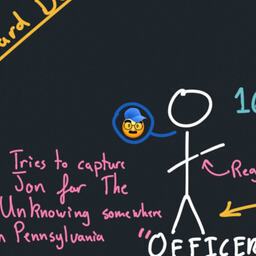 ard D
10
Tries to capture
Jon for The
Unknowing somewhere
n Pennsylvania "
Reg
OFFICER